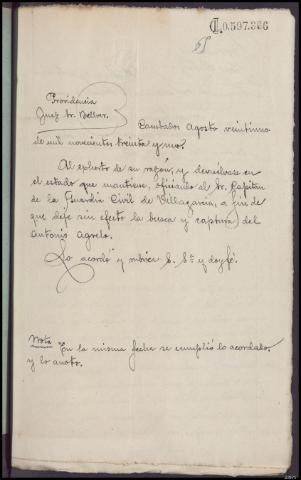 C1.0.597.366
Providencia
Juez Sr. Bellver.
Cambados Agosto veintiuno
de mil novecientos treinta y uno.
Al exhorto de su razon, y devuélvase en
el estado que mantiene, oficiando al Sr. Capitán
de la Guardia Civil de Villagarcia, a fin de
que deje sin efecto la busca y captura del
Antonio Agrelo.
Lo acordó y rubrica S. Sª y doy fé.
Nota En la misma fecha se cumplió lo acordado.
y lo anoto.